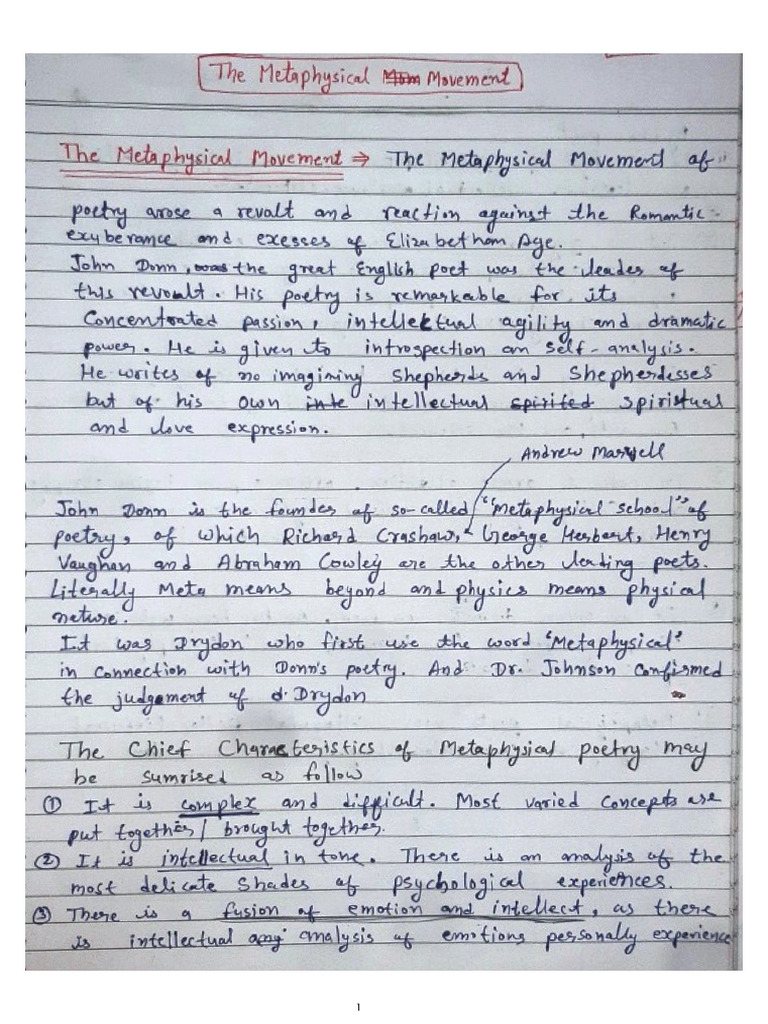 The Metaphysical Movement
The Metaphysical Movement ⇒ The Metaphysical Movement of
poetry arose a revolt and reaction against the Romantic
exuberance and exesses of Elizabetham Age.
John Donn, the great English poet was the leader of
this revoult. His poetry is remarkable for its
Concentrated passion, intellectual agility and dramatic
power. He is given to introspection an self-analysis.
He writes of no imagining Shepherds and Shepherdesses
but of his own intellectual spiristual
and love expression.
Andrew Marvell
John Donn is the founder of so-called "Metaphysical school" of
poetry, of which Richard Crashaw, George Herbert, Henry
Vaughan and Abraham Cowley are the other leading poets.
Literally Meta means beyond and physics means physical
nature.
It was Drydon who first use the word 'Metaphysical'
in connection with Donn's poetry. And Dr. Johnson confirmed
the judgement of d. Drydon
The Chief Characteristics of Metaphysical poetry may
be sumrised as follow
① It is complex and difficult. Most varied concepts are
put together / brought together.
② It is intellectual in tone. There is an analysis of the
most delicate shades of psychological experiences.
③ There is a fusion of emotion and intellect, as there
is intellectual analysis of emotions personally experience
1